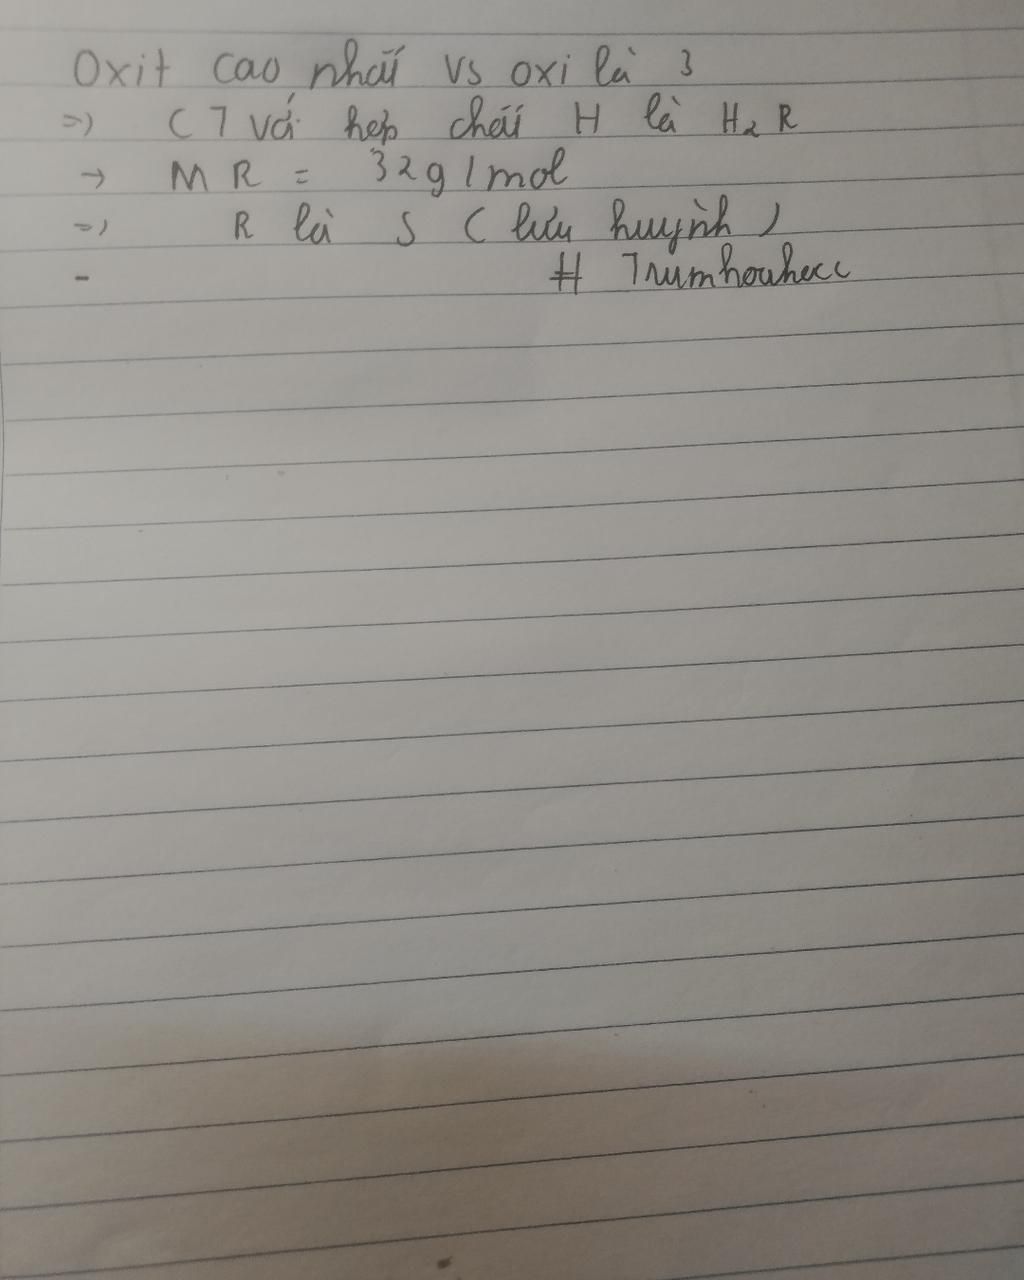 Oxit cao nhất vs oxi là 3
=) CT với hợp chất H là H₂R
→ MR = 32g/mol
=) R là S ( lưu huỳnh )
- # Trumhoahocc